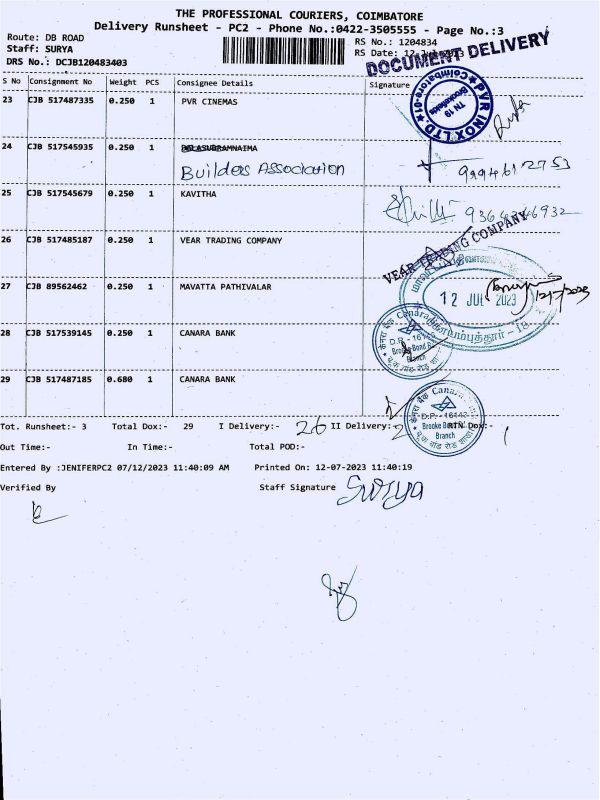 THE PROFESSIONAL COURIERS, COIMBATORE
Delivery Runsheet - PC2 - Phone No.:0422-3505555 - Page No.:3
Route: DB ROAD
RS No.: 1204834
Staff: SURYA
RS Date: 12-Jul-2023
DRS No.: DCJB120483403
DOCUMENT DELIVERY
S No Consignment No Weight PCS Consignee Details Signature
23 CJB 517487335 0.250 1 PVR CINEMAS
PVR INOX LTD. ★ Coimbatore-01 ★
TN 19
Brookefields
24 CJB 517545935 0.250 1
Builders Association
9994612753
25 CJB 517545679 0.250 1 KAVITHA
26 CJB 517485187 0.250 1 VEAR TRADING COMPANY
VEAR TRADING COMPANY
27 CJB 89562462 0.250 1 MAVATTA PATHIVALAR
12 JUL 2023
12/7/2023
கோயம்புத்தூர் - 18.
28 CJB 517539145 0.250 1 CANARA BANK
केनरा बैंक Canara
D.P. - 16142
Brooke Bond
Branch
29 CJB 517487185 0.680 1 CANARA BANK
केनरा बैंक Canara
D.P. - 16142
Brooke Bond
Branch
Tot. Runsheet:- 3 Total Dox:- 29 I Delivery:- 26 II Delivery:- 2 RTN Dox:- 1
Out Time:- In Time:- Total POD:-
Entered By :JENIFERPC2 07/12/2023 11:40:09 AM Printed On: 12-07-2023 11:40:19
Verified By Staff Signature Surya